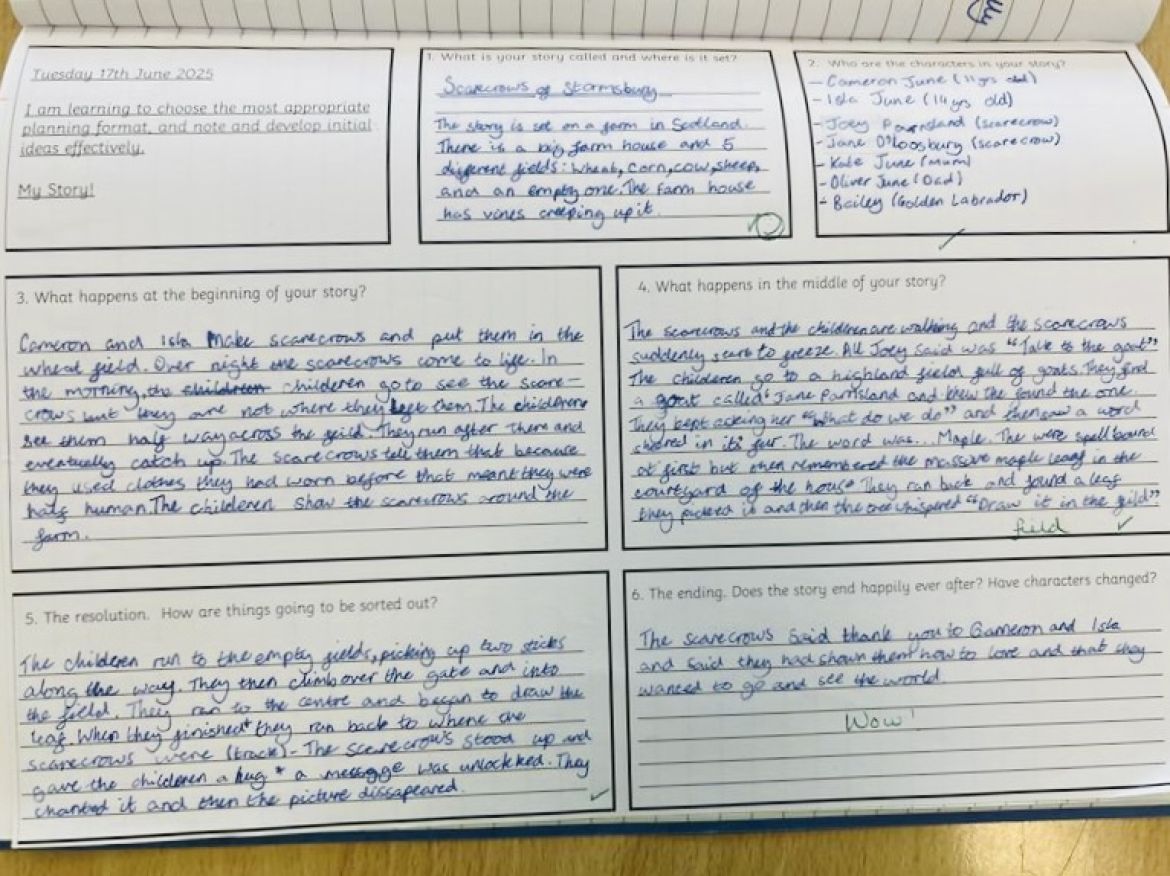 Tuesday 17th June 2025
I am learning to choose the most appropriate
planning format, and note and develop initial
ideas effectively.
My Story!
1. What is your story called and where is it set?
Scarecrows of Stormsbury
The story is set on a farm in Scotland.
There is a big farm house and 5
different fields: Wheat, corn, cow, sheep,
and an empty one. The farm house
has vines creeping up it.
2. Who are the characters in your story?
- Cameron June (11 yrs old)
- Isla June (14 yrs old)
- Joey Parnsland (scarecrow)
- Jane O'loosbury (scarecrow)
- Kate June (Mum)
- Oliver June (Dad)
- Bailey (Golden Labrador)
3. What happens at the beginning of your story?
Cameron and Isla Make scarecrows and put them in the
wheat field. Over night the scarecrows come to life. In
the morning, the childeren go to see the scare-
crows but they are not where they left them. The childeren
see them half way across the feild. They run after there and
eventually catch up. The scarecrows tell them that because
they used clothes they had worn before that meant they were
half human. The childeren show the scarecrows around the
farm.
4. What happens in the middle of your story?
The scarecrows and the childeren are walking and the scarecrows
suddenly start to freeze. All Joey said was "Talk to the goat"
The childeren go to a highland field full of goats. They find
a goat called Jane Parnsland and knew the found the one.
They kept asking her "What do we do" and then saw a word
shaved in its fur. The word was... Maple. The were spellbound
at first but then remembered the massive maple leaf in the
courtyard of the house. They ran back and found a leaf
they picked it and then the tree whispered "Draw it in the feild"
field
5. The resolution. How are things going to be sorted out?
The childeren run to the empty fields, picking up two sticks
along the way. They then climb over the gate and into
the field. They ran to the centre and began to draw the
leaf. When they finished* they ran back to where the
scarecrows were (track)- The scarecrows stood up and
gave the childeren a hug * a message was unlocked. They
chanted it and then the picture dissapeared.
6. The ending. Does the story end happily ever after? Have characters changed?
The scarecrows said thank you to Cameron and Isla
and said they had shown them how to love and that they
wanted to go and see the world.
Wow!